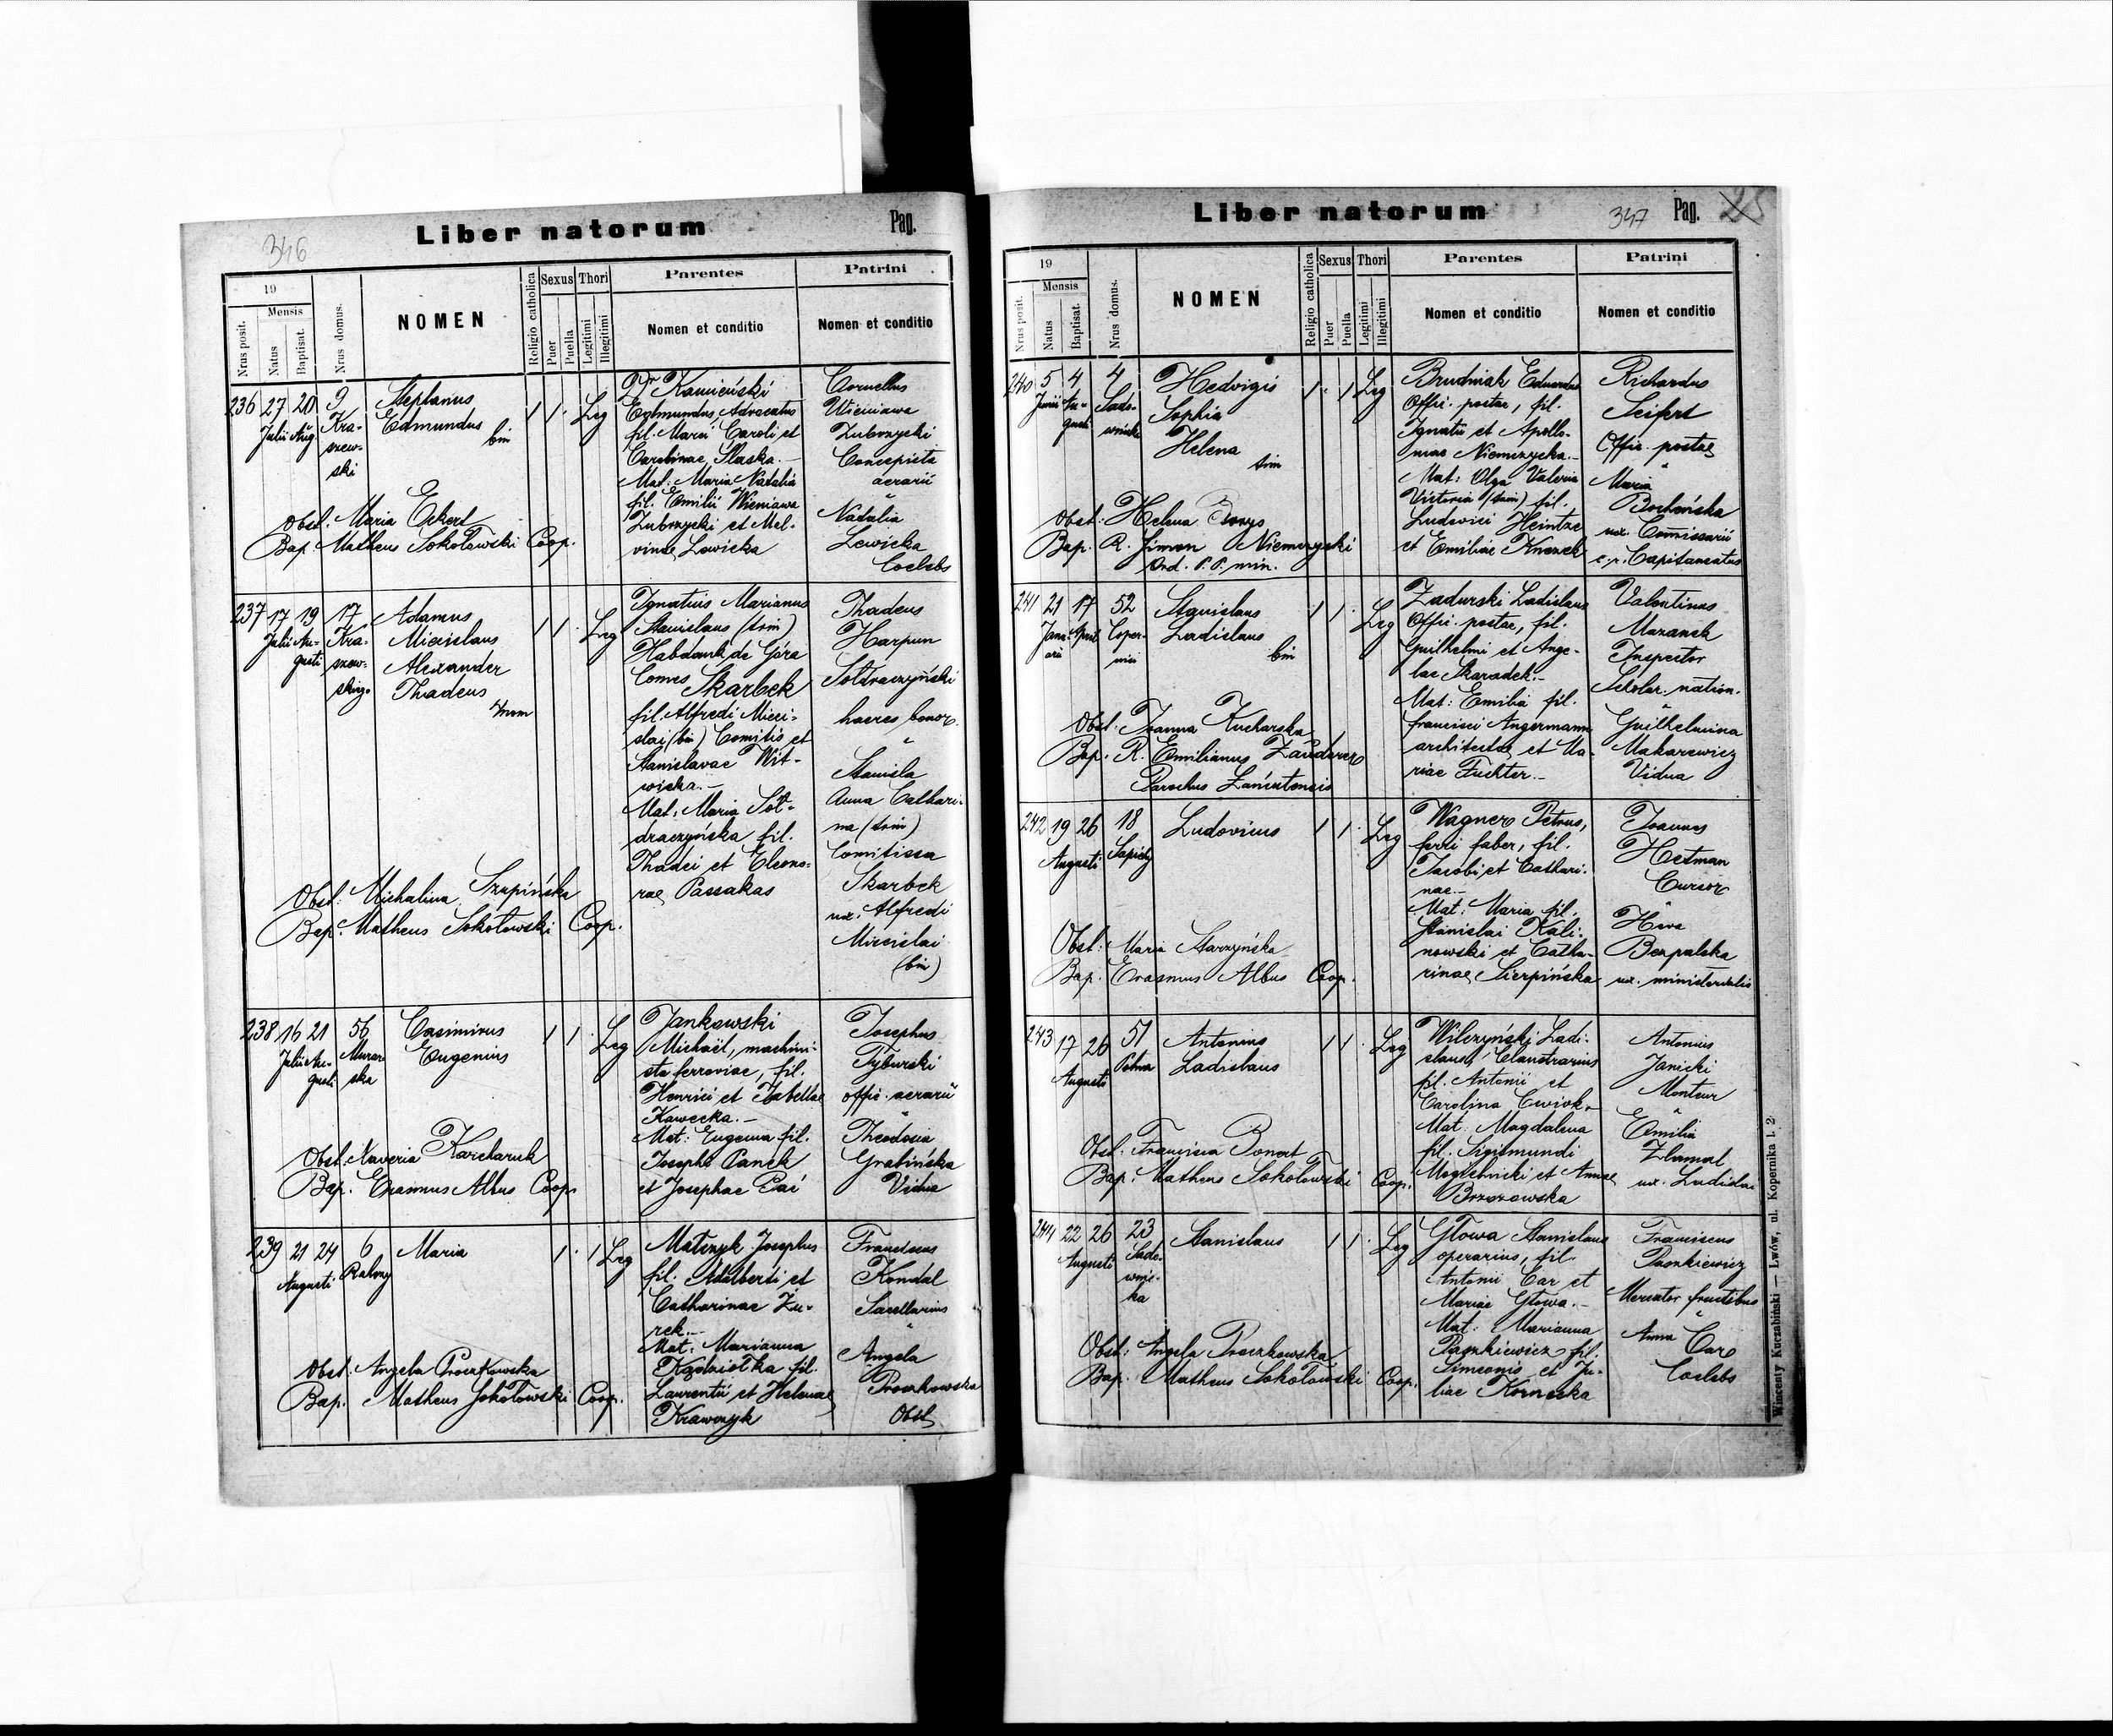 Liber natorum
Pag.
346
19
Mensis
Nrus posit.
Natus
Baptisat.
Nrus domus.
NOMEN
Religio catholica
Sexus
Puer
Puella
Thori
Legitimi
Illegitimi
Parentes
Nomen et conditio
Patrini
Nomen et conditio
236 27 20 9
Julii Aug
Kra-
szew-
ski
Stephanus
Edmundus
bin
1 1 Leg
Dr Kamieński
Edmundus, Advocatus
fil. Marii Caroli et
Carolinae Slaska.-
Mat. Maria Natalia
fil. Emilii Wieniawa
Zubrzycki et Mel-
vinae Lewicka
Cornelius
Wieniawa
Zubrzycki
Concepista
aerarii
Natalia
Lewicka
Coelebs
Obst. Maria Eckert
Bap. Matheus Sokołowski Coop.
237 17 19 17
Julii Au-
gusti
Kra-
szew-
skiego
Adamus
Miecislaus
Alexander
Thadeus
1 1 Leg
Ignatius Marianus
Stanislaus (trin)
Habdank de Góra
Comes Skarbek
fil. Alfredi Mieci-
slai (bin) Comitis et
Stanislavae Wit-
wicka.-
Mat. Maria Soł-
draczyńska fil.
Thadei et Eleono-
rae Passakas
Thadeus
Harpun
Sołdraczyński
haeres bonor.
Stanisla
Anna Cathari-
na (trin)
Comitissa
Skarbek
ux. Alfredi
Miecislai
(bin)
Obst. Michalina Szupińska
Bap. Matheus Sokołowski Coop.
238 16 21 56
Julii Au-
gusti
Murar-
ska
Casimirus
Eugenius
1 1 Leg
Jankowski
Michaël, machini-
sta ferroviae, fil.
Henrici et Isabellae
Kawecka.-
Mat: Eugenia fil.
Josephi Panek
et Josephae Pai
Josephus
Tyburski
offic. aerarii
Theodosia
Grabińska
Vidua
Obst. Xaveria Karcharuk
Bap. Erasmus Albus Coop.
239 21 24 6
Augusti
Maria
1 1 Leg
Matczyk Josephus
fil. Adalberti et
Catharinae Żu-
rek.-
Mat. Marianna
fil.
Laurentii et Helenae
Krawczyk
Franciscus
Kondal
Sacellarius
Angela
Proczkowska
Obst.
Obst. Angela Proczkowska
Bap. Matheus Sokołowski Coop.
Liber natorum
347
Pag. 25
19
Mensis
Nrus posit.
Natus
Baptisat.
Nrus domus.
NOMEN
Religio catholica
Sexus
Puer
Puella
Thori
Legitimi
Illegitimi
Parentes
Nomen et conditio
Patrini
Nomen et conditio
240 5 4 4
Junii Au-
gusti
Sado-
wnicka
Hedvigis
Sophia
Helena
trin
1 1 Leg
Brudniak Eduardus
Offic. postae, fil.
Ignatii et Apollo-
niae Niemczycka.-
Mat: Olga Valeria
Victoria (trin) fil.
Ludovici Heintze
et Emiliae Knezek
Richardus
Seifert
Offic. postae
Maria
Bocheńska
ux. Comissarii
c. r. Capitaneatus
Obst: Helena
Bap. R. Simon Niemczycki
Ord. P. P. min.
241 21 17 52
Janu-
arii
April
Coper-
nici
Stanislaus
Ladislaus
bin
1 1 Leg
Zadurski Ladislaus
Offic. postae, fil.
Guilhelmi et Ange-
lae Skaradek.-
Mat: Emilia fil.
Francisci Angermann
architectae et Ma-
riae Fuchter.-
Valentinus
Mazanek
Inspector
Scholar. nation.
Guilhelmina
Makarewicz
Vidua
Obst. Joanna Kucharska
Bap. R. Emilianus Zauderer
Parochus
242 19 26 18
Augusti
Sapiehy
Ludovicus
1 1 Leg
Wagner Petrus,
ferri faber, fil.
Jacobi et Cathari-
nae.-
Mat: Maria fil.
Stanislai Kali-
nowski et Catha-
rinae Sierpińska
Joannes
Hetman
Cursor
Berpalska
ux. ministerialis
Obst: Maria Starzyńska
Bap. Erasmus Albus Coop.
243 17 26 51
Augusti
Polna
Antonius
Ladislaus
1 1 Leg
Wilczyński Ladi-
slaus, Claustrarius
fil. Antonii et
Carolina Cwiok.
Mat. Magdalena
fil. Sigismundi
Mogielnicki et Annae
Brzozowska
Antonius
Janicki
Monteur
Emilia
Zlamal
ux. Ladislai
Obst. Francisca Bonert
Bap. Matheus Sokołowski Coop.
244 22 26 23
Augusti
Sado-
wnic-
ka
Stanislaus
1 1 Leg
Głowa Stanislaus
operarius, fil.
Antonii Car et
Mariae Głowa.-
Mat: Marianna
Paszkiewicz fil.
Simeonis et Ju-
liae Kornecka
Franciscus
Paszkiewicz
Mercator fructibus
Anna Car
Coelebs
Obst: Angela Proczkowska
Bap. Matheus Sokołowski Coop.
Wincenty Kuczabiński — Lwów, ul. Kopernika l. 2